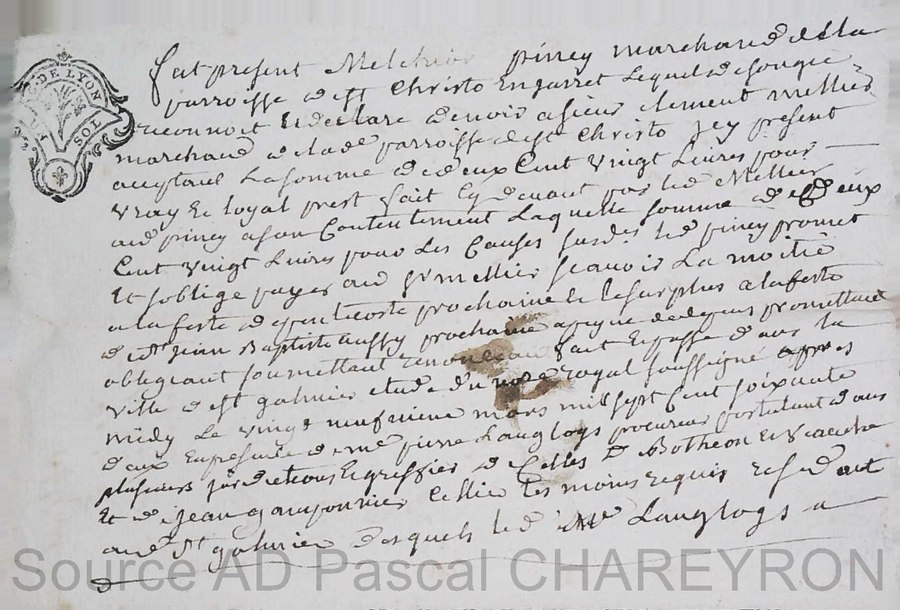 DE LYON
SOL
fut present Melchior piney marchand de la
parroisse de st Christo En jarret Lequel de son gre
reconnoit Et declare devoir a sieur clement mellier
marchand de lade parroisse de st Christo Icy present
acceptant La somme de deux Cent Vingt Livres pour
Vray Et loyal prest fait Cy devant par led Mellier
aud piney a son Contentement Laquelle somme de deux
Cent Vingt Livres pour Les Causes susdes led piney promet
Et soblige payer aud sr mellier scavoir La moitié
a la feste de pentecoste prochaine Et le surplus a la feste
de st jean Baptiste aussy prochaine a peyne de depens promettant
obligeant soumettant renonceant fait Et passé dans la
Ville de st galmier etude du nore royal soussigné apres
midy Le vingt neufvieme mars mil sept Cent soixante
deux En presence de me pierre Langlogs procureur postulant dans
plusieurs jurisdictions Et greffier de Celles de Botheon Et Veauche
Et de jean Cellier les moins requis residant
aud st galmier desquels led Me Langlogs a
Source AD Pascal CHAREYRON